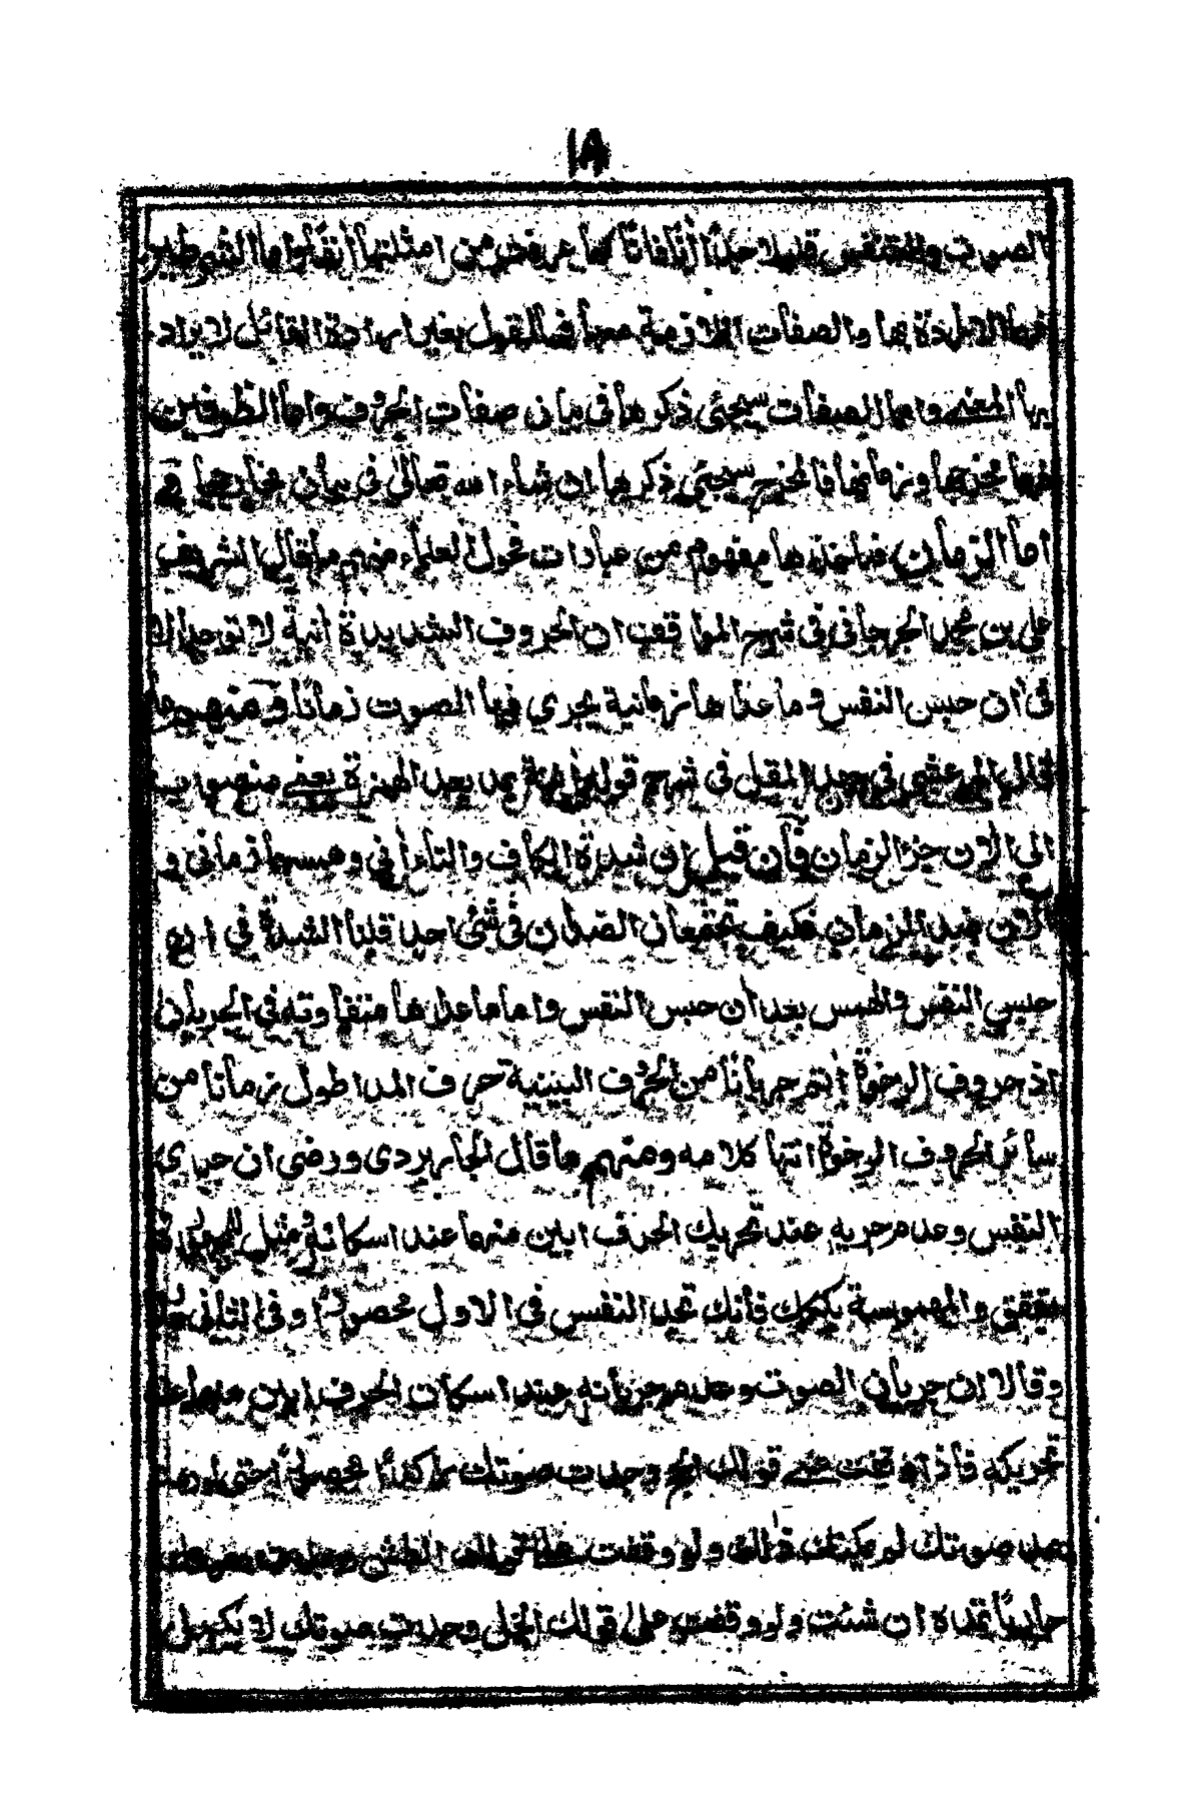 ١٨
الصوت والمتنفس قليلا جدا آنافانا كما عرفت من امثلتها أنفا واما الشرطين
فهما الارادة بها والصفات اللازمة معها فبالقول بغير ارادة القائل لا يراد
بها المعنى واما الصفات سيجئ ذكرها في بيان صفات الحروف واما الظرفين
فهما مخرجها وزمانها فالمخرج سيجئ ذكرها ان شاء الله تعالى في بيان مخارجها
اما الزمان مفهوم من عبارات فحول العلماء منهم ما قال الشريف
علي بن محمد الجرجاني في شرح المواقف ان الحروف الشديدة أنية لا توجد الا
في أن حبس النفس وما عداها زمانية يجري فيها الصوت زمانا ومنهم ما
قال المرعشي في جهد المقل في شرح قوله يعني منصوب
الى الان جزء الزمان فأن قيل ان شدة الكاف والتاء أني وهمسها زماني و
الأن ضد الزمان فكيف تجتمعان الضدان في شئ احد قلنا الشدة في ان
حبس النفس والهمس بعد أن حبس النفس واما ما عداها متفاوته في الجريان
اذ حروف الرخوة أتم جريانا من الحروف البينية حرف المد اطول زمانا من
سائر الحروف الرخوة انتها كلامه ومنهم ما قال الجاربردي ورضى ان جري
النفس وعدم جريه عند تحريك الحرف ابين منها عند اسكانه مثل المجهورة
بققق والمهموسة بككك فأنك تجد النفس في الاول محصورا وفي الثاني
وقالا ان جريان الصوت وعدم جريانه عند اسكان الحرف ابين منهما عند
تحريكه فأذا وقفت على قولك الحج وجدت صوتك راكدا محصورا حتى لو رمت
مد صوتك لم يمكنك ذالك ولو وقفت على قولك الطش وجدت صوت
جاريا تمده ان شئت ولو وقفت على قولك الخل وجدت صوتك لا يكمل